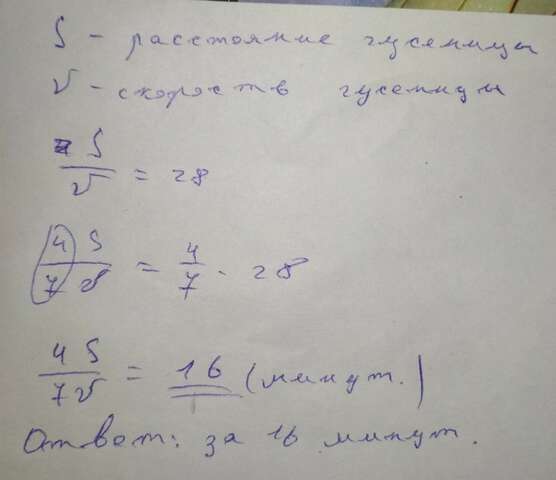 S - расстояние гусеницы
V - скорость гусеницы
S/V = 28
4S/7V = 4/7 · 28
4S/7V = 16 (минут.)
Ответ: за 16 минут.